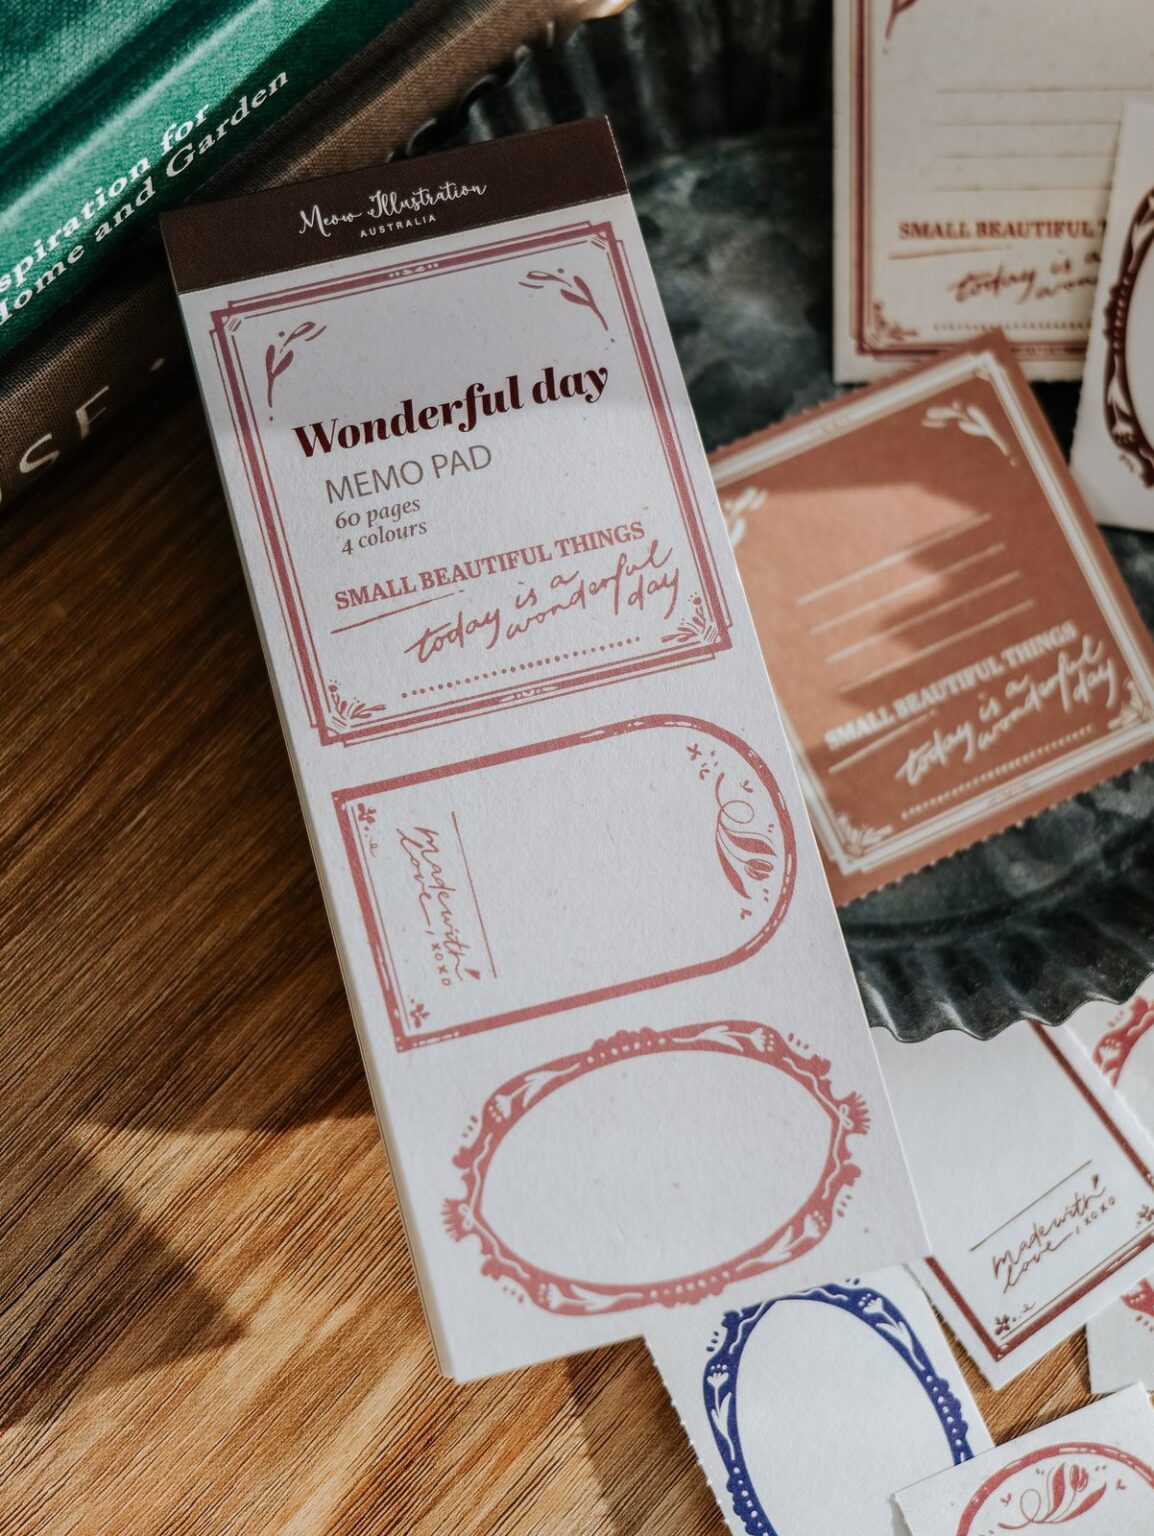 spiration for
Home and Garden
Meow Illustration
AUSTRALIA
Wonderful day
MEMO PAD
60 pages
4 colours
SMALL BEAUTIFUL THINGS
today is a
wonderful
day
made with
love, xoxo
SMALL BEAUTIFUL T
today is a
SMALL BEAUTIFUL THINGS
today is a
wonderful
day
made with
love, xoxo